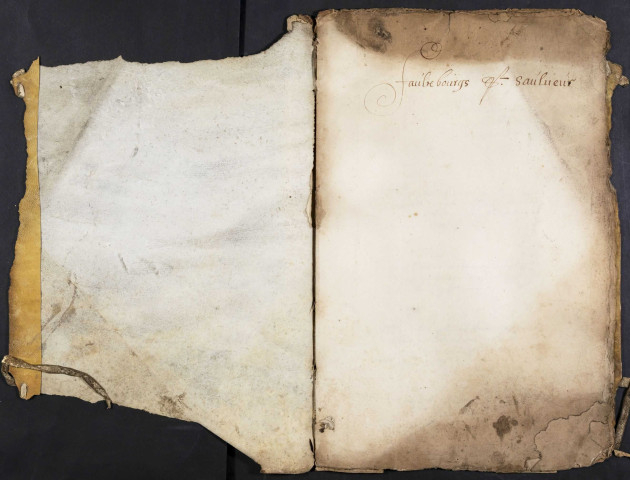 faulxbourgs St Saulueur